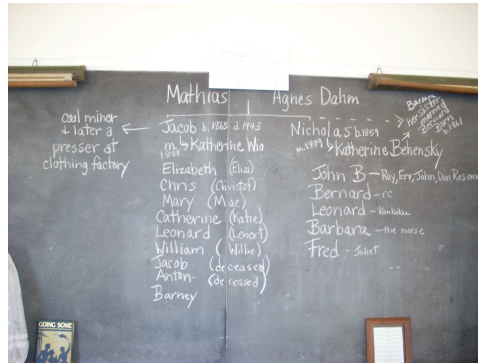 Mathias Agnes Dahm
coal miner
& later a
presser at
clothing factory
Jacob b. 1865 d. 1943
m. 1888 ↳ Katherine Wio
Elizabeth (Eliza)
Chris (Christof)
Mary (Mae)
Catherine (Katie)
Leonard (Lenert)
William (Willie)
Jacob (deceased)
Anton- (deceased)
Barney
Nicholas b. 1859
m. 1889 ↳ Katherine Behensky
John B - Ray, Erv, John, Don
Bernard - cc
Leonard - Kankakee
Barbara - the nurse
Fred - Joliet
Barbara
her sister
married
Bernard
Born
1861
GOING SOME